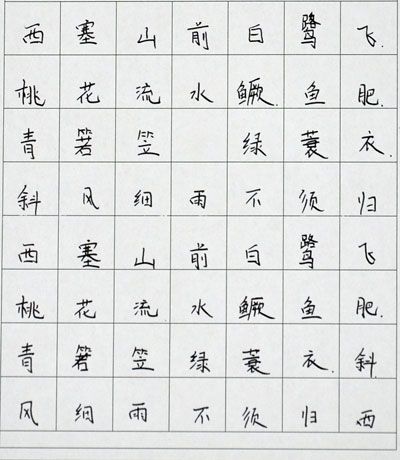 西塞山前白鹭飞.
桃花流水鳜.鱼肥.
青箬笠 绿蓑衣.
斜风细雨不须归
西塞山前白鹭飞
桃花流水鳜鱼肥.
青箬笠绿蓑衣.斜
风细雨不须归西